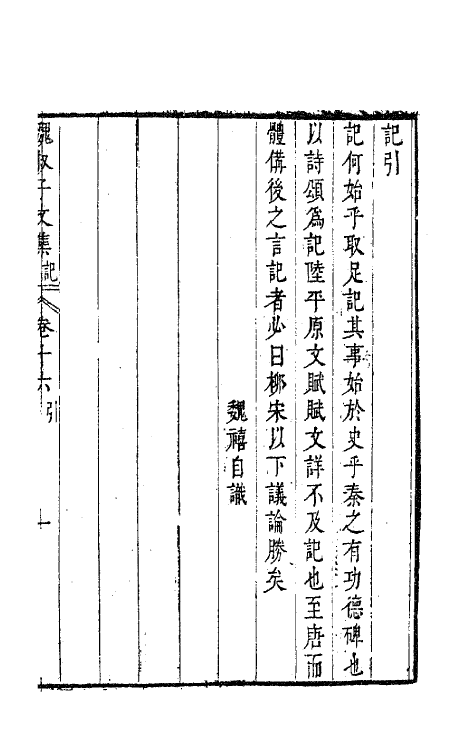 記引
記何始乎取足記其事始於史乎秦之有功德碑也
以詩頌爲記陸平原文賦賦文詳不及記也至唐而
體備後之言記者必曰柳宋以下議論勝矣
魏禧自識
魏叔子文集 記 卷十六 引 一